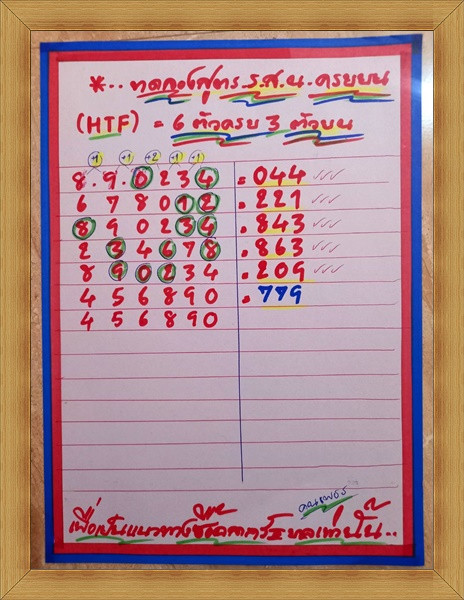 *.. ทดลองสูตร ร.ส.น. ครบบน
(HTF) = 6 ตัวครบ 3 ตัวบน
+1 +1 +2 +1 +1
8.9.0 2 3 4 = 044 ✓✓✓
6 7 8 0 1 2 = 221 ✓✓✓
8 9 0 2 3 4 = 843 ✓✓✓
2 3 4 6 7 8 = 863 ✓✓✓
8 9 0 2 3 4 = 209 ✓✓✓
4 5 6 8 9 0 = 779
4 5 6 8 9 0
เพื่อเป็นแนวทางซื้อสลากรัฐบาลเท่านั้น..